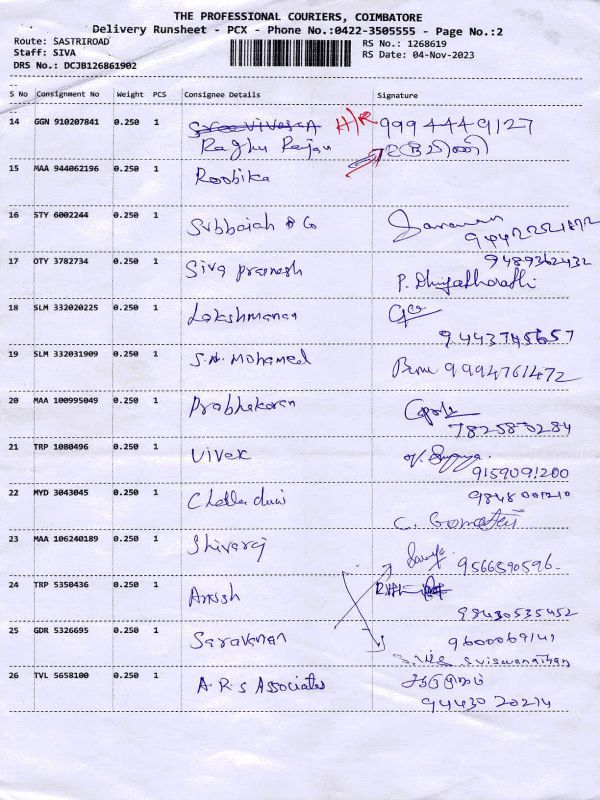 THE PROFESSIONAL COURIERS, COIMBATORE
Delivery Runsheet - PCX - Phone No.:0422-3505555 - Page No.:2
Route: SASTRIROAD
RS No.: 1268619
Staff: SIVA
RS Date: 04-Nov-2023
DRS No.: DCJB126861902
S No Consignment No Weight PCS Consignee Details Signature
14 GGN 910207841 0.250 1 H/R 9994449127
Raghu Rajan
15 MAA 944062196 0.250 1 Roobika
16 STY 6002244 0.250 1 Subbaiah & Co
17 OTY 3782734 0.250 1 Siva pranesh 9489362432
18 SLM 332020225 0.250 1 Lakshmanan
9443745657
19 SLM 332031909 0.250 1 S.A. Mohamed 9994761472
20 MAA 100995049 0.250 1 Prabhakaran
7825870284
21 TRP 1080496 0.250 1 Vivek
9159091200
22 MYD 3043045 0.250 1 Chella durai 9848001210
C. Gomathi
23 MAA 106240189 0.250 1 Shivaraj 9566590596
24 TRP 5350436 0.250 1 Anish
98430535452
25 GDR 5326695 0.250 1 Saravanan 9600069141
S.viswanathan
26 TVL 5658100 0.250 1 A.R.S Associates
94430 20214